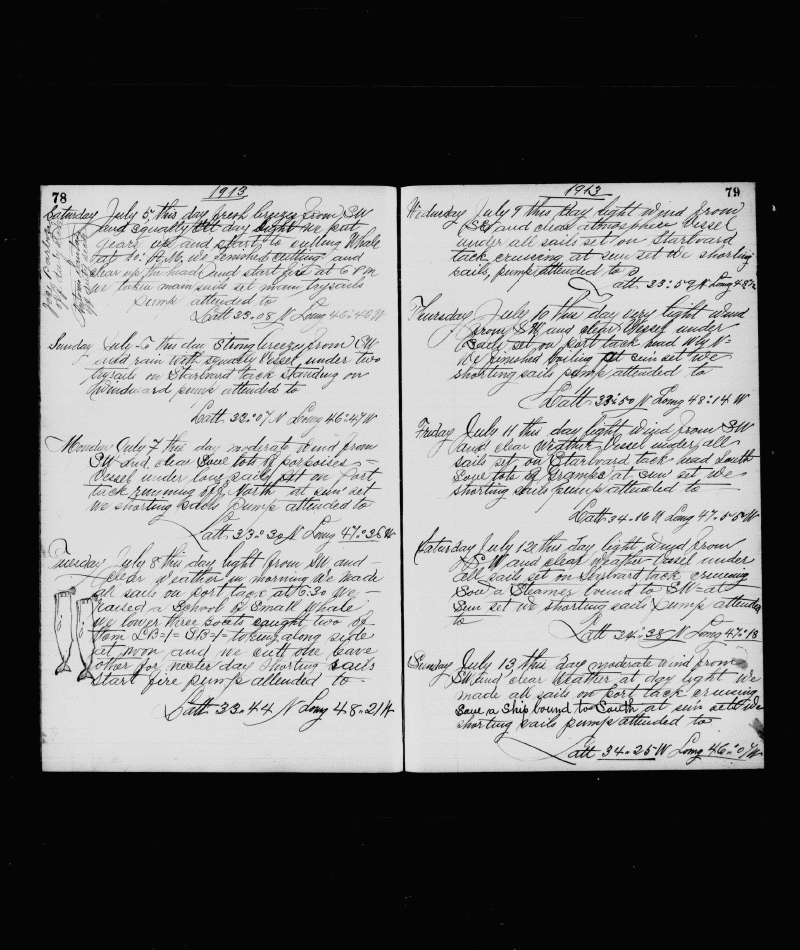 78
1913
Saturday July 5, this day fresh breezes from SW
and squally at day light we put
gears up and start to cutting Whale
at 10: A.M. we finished cutting and
clear up the head and start fire at 6 P M
we taken main sails set main trysails
pump attended to
Latt 33.08 N Long 46.46 W
Sunday July 6 this day Strong breezes from SW
and rain with squally Vessel under two
trysails on Starbard tack standing on
Windward pump attended to
Latt 33.07 N Long 46.47 W
Monday July 7 this day moderate Wind from
SW and clear Saue lots of porpoises
Vessel under long sails set on Port
tack running off North at sun set
we shorting sails pump attended to
Latt 33.30 N Long 47.36 W
Tuesday July 8 this day light from SW and
clear Weather in morning We made
all sails on port tack at 6:30 We
raised a School of Small Whale
We lower three boats caught two of
them LB=1= SB=1= taking along side
at noon and we cutt one leave
other for nexter day Shorting sails
Start fire pump attended to
Latt 33.44 N Long 48.21 W
79
1913
Wednesday July 9 this day light wind from
SW and clear atmosphere Vessel
under all sails set on Starbard
tack cruising at sun set We shorting
sails, pump attended to
Latt 33.59 N Long 48
Thursday July 10 this day very light wind
from SW and clear Vessel under
sails set on port tack head W by N
We finished boiling at sun set we
shorting sails pump attended to
Latt 33.50 N Long 48.14 W
Friday July 11 this day light wind from SW
and clear Weather Vessel under all
sails set on Starbard tack head South
Saue lots of grampus at sun set we
shorting sails pump attended to
Latt 34.16 N Long 47.55 W
Saturday July 12 this day light wind from
W and clear weather Vessel under
all sails set on Starbard tack cruising
Saw a Steamer bound to SW = at
Sun set we shorting sails Pump attended
to
Latt 34.38 N Long 47.18
Sunday July 13 this day moderate wind from
SW and clear Weather at day light We
made all sails on port tack cruising
Saue a Ship bound to South at sun sett We
shorting sails pump attended to
Latt 34.25 N Long 46.07 W